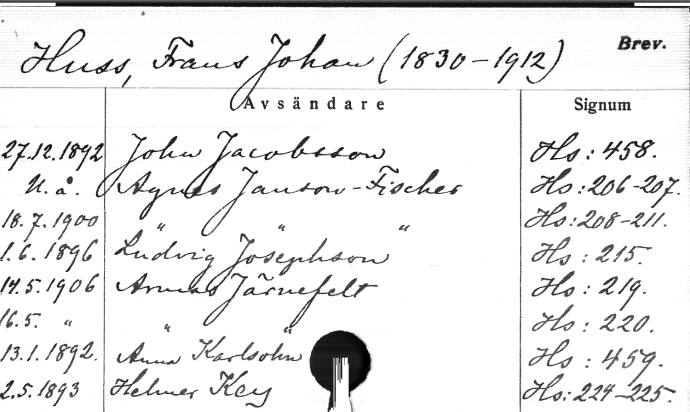 Huss, Frans Johan (1830-1912) Brev.
Avsändare Signum
27.12.1892 John Jacobsson Hs: 458.
U. å. Agnes Janson-Fischer Hs: 206-207.
18.7.1900 " " " Hs: 208-211.
1.6.1896 Ludvig Josephson Hs: 215.
14.5.1906 Armas Järnefelt Hs: 219.
16.5. " " " Hs: 220.
13.1.1892. Anna Karlsohn Hs: 459.
2.5.1893 Helmer Key Hs: 224-225.